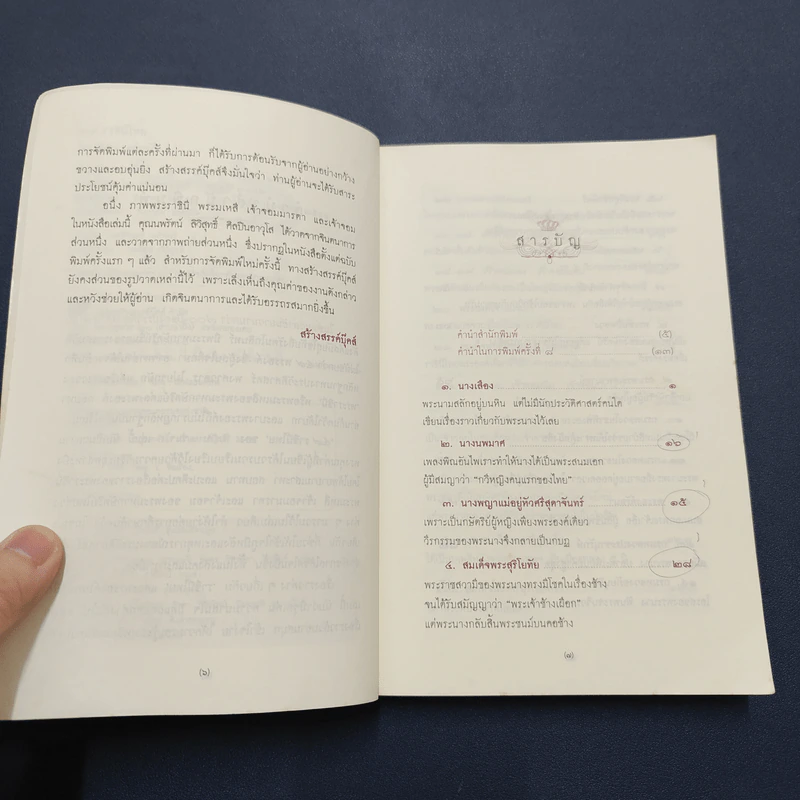 การจัดพิมพ์แต่ละครั้งที่ผ่านมา ก็ได้รับการต้อนรับจากผู้อ่านอย่างกว้าง
ขวางและอบอุ่นยิ่ง สร้างสรรค์บุ๊คส์จึงมั่นใจว่า ท่านผู้อ่านจะได้รับสาระ
ประโยชน์คุ้มค่าแน่นอน
อนึ่ง ภาพพระราชินี พระมเหสี เจ้าจอมมารดา และเจ้าจอม
ในหนังสือเล่มนี้ คุณนพรัตน์ ลิวิสุทธิ์ ศิลปินอาวุโส ได้วาดจากจินตนาการ
ส่วนหนึ่ง และวาดจากภาพถ่ายส่วนหนึ่ง ซึ่งปรากฏในหนังสือตั้งแต่ฉบับ
พิมพ์ครั้งแรก ๆ แล้ว สำหรับการจัดพิมพ์ใหม่ครั้งนี้ ทางสร้างสรรค์บุ๊คส์
ยังคงส่วนของรูปวาดเหล่านี้ไว้ เพราะเล็งเห็นถึงคุณค่าของงานดังกล่าว
และหวังช่วยให้ผู้อ่าน เกิดจินตนาการและได้รับอรรถรสมากยิ่งขึ้น
สร้างสรรค์บุ๊คส์
(๖)
สารบัญ
คำนำสำนักพิมพ์ (๕)
คำนำในการพิมพ์ครั้งที่ ๘ (๑๓)
๑. นางเสือง ๑
พระนามสลักอยู่บนหิน แต่ไม่มีนักประวัติศาสตร์คนใด
เขียนเรื่องราวเกี่ยวกับพระนางไว้เลย
๒. นางนพมาศ ๑๖
เพลงพิณอันไพเราะทำให้นางได้เป็นพระสนมเอก
ผู้มีสมญาว่า "กวีหญิงคนแรกของไทย"
๓. นางพญาแม่อยู่หัวศรีสุดาจันทร์ ๑๕
เพราะเป็นกษัตริย์ผู้หญิงเพียงพระองค์เดียว
วีรกรรมของพระนางจึงกลายเป็นกบฏ
๔. สมเด็จพระสุริโยทัย ๒๘
พระราชสวามีของพระนางทรงมีโชคในเรื่องช้าง
จนได้รับสมัญญาว่า "พระเจ้าช้างเผือก"
แต่พระนางกลับสิ้นพระชนม์บนคอช้าง